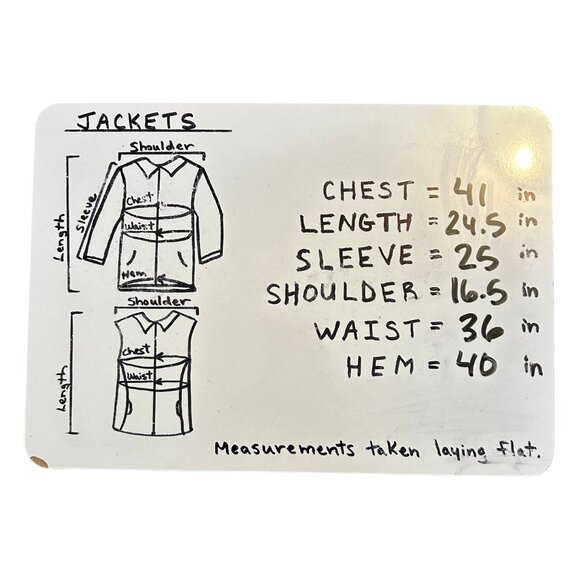 JACKETS
Shoulder
Length
Sleeve
Chest
Waist
Hem
Shoulder
Length
Chest
Waist
CHEST = 41 in
LENGTH = 24.5 in
SLEEVE = 25 in
SHOULDER = 16.5 in
WAIST = 36 in
HEM = 40 in
Measurements taken laying flat.